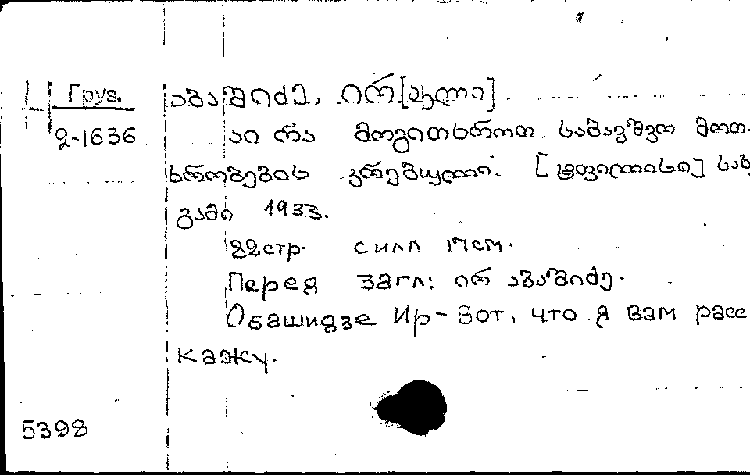 Груз. აბაშიძე, ირ[აკლი]
2-1636 აი რა მოგითხროთ. საბავშვო მოთ-
ხრობების კრებული. [ტფილისი] სახ
გამი 1933.
22стр. с илл 17см.
Перед загл: ირ აბაშიძე.
Обашидзе Ир-Вот, что я вам расс
кажу.
5398